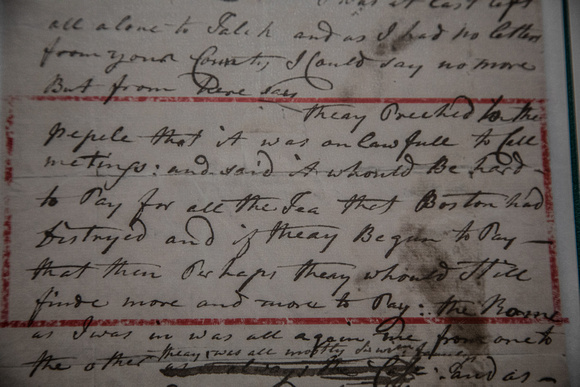 was at last left
all alone to Talk and as I had no letters
from your County, I Could say no more
But from Dere say
theay Preched to the
pepele that it was onlawfull to Call
metings: and said it whould Be hard
to Pay for all the Tea that Boston had
Distryed and if theay Begun to Pay —
that then Perhaps theay whould Still
finde more and more to Pay: the Rome
as I was in was all again me from one to
the other theay was all mostly : and as -